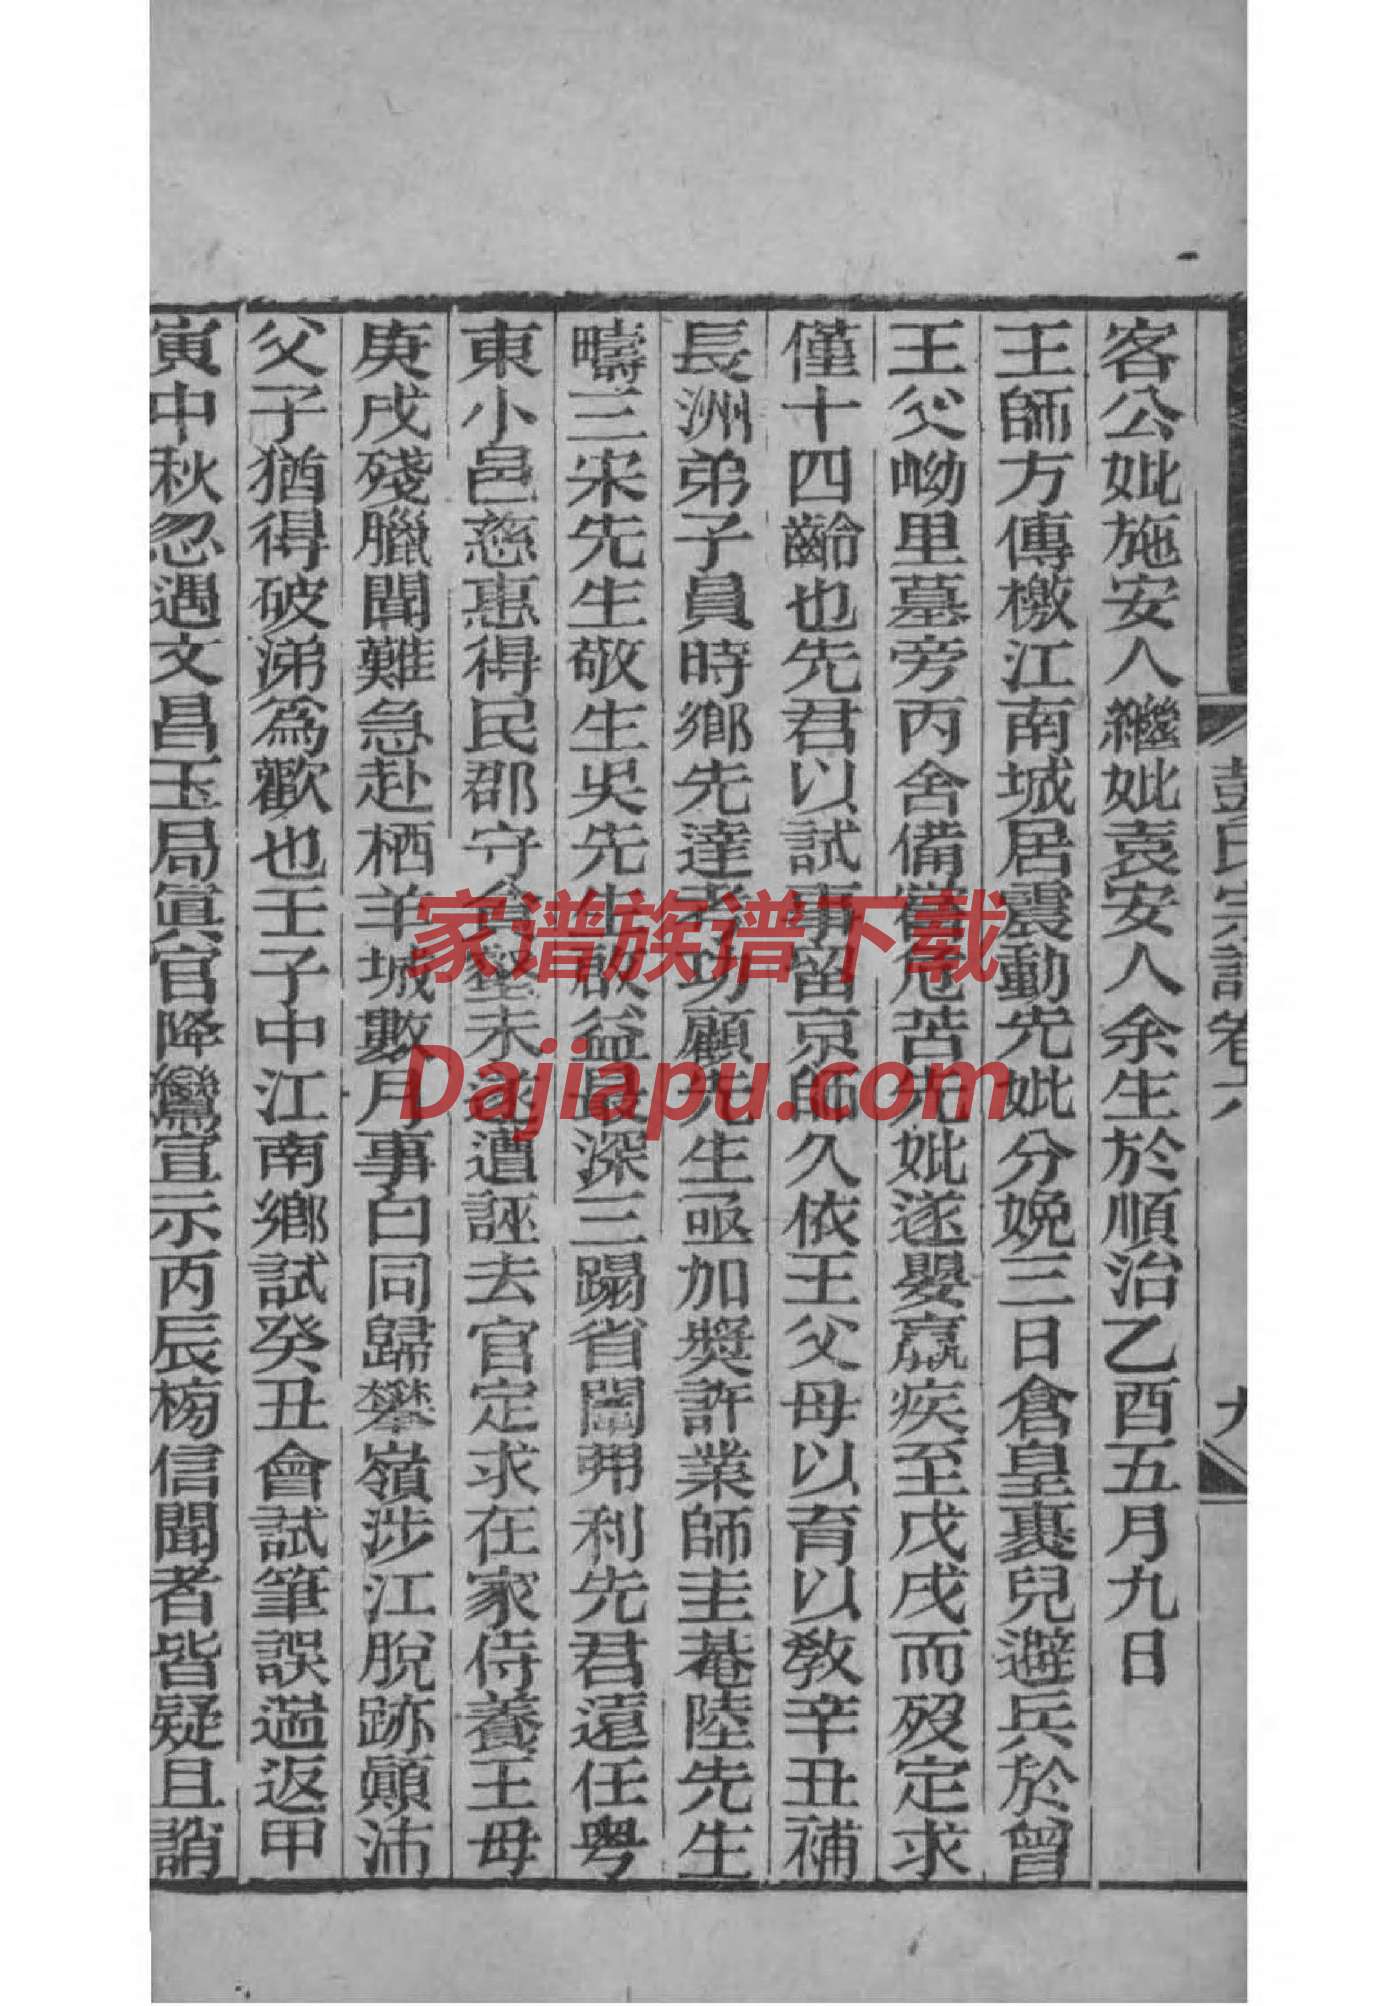 彭氏宗譜卷六
九
客公妣施安人繼妣袁安人余生於順治乙酉五月九日
王師方傳檄江南城居震動先妣分娩三日倉皇裹兒避兵於曾
王父㘭里墓旁丙舍備嘗危苦先妣遂嬰羸疾至戊戌而歿定求
僅十四齡也先君以試事留京師久依王父母以育以敎辛丑補
長洲弟子員時鄉先達考功顧先生亟加奬許業師圭菴陸先生
疇三宋先生敬生吳先生啟益最深三蹋省闈弗利先君遠任粤
東小邑慈惠得民郡守
未遂遭誣去官定求在家侍養王母
庚戌殘臘聞難急赴栖羊城數月事白同歸攀嶺涉江脫跡顚沛
父子猶得破涕爲歡也壬子中江南鄉試癸丑會試筆誤遄返甲
寅中秋忽遇文昌玉局眞官降鸞宣示丙辰榜信聞者皆疑且誚
家谱族谱下载
Dajiapu.com